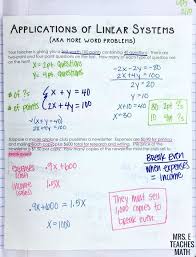 APPLICATIONS OF LINEAR SYSTEMS
(AKA MORE WORD PROBLEMS)
Your teacher is giving you a test worth 100 points containing 40 questions. There are
two-point and four-point questions on the test. How many of each type of question
are on the test?
X = 2pt questions
Y = 4pt question
-2x-2y=-80
2x+4y=100
2y=20
y=10
# of ?s
x + y = 40
# of points
2x + 4y = 100
x+10=40
x=30
30 2pt ?s
10 4pt ?s
Suppose a model airplane club publishes a newsletter. Expenses are $0.90 for printing
and mailing each copy, plus $600 total for research and writing. The price of the
newsletter is $1.50 per copy. How many copies of the newsletter must the club sell to
break even?
expenses
.9x+600
income
1.5x
Break even
when expenses
= income
.9x+600=1.5x
x=1000
They must sell
1,000 copies to
break even.
MRS. E
TEACHES
MATH